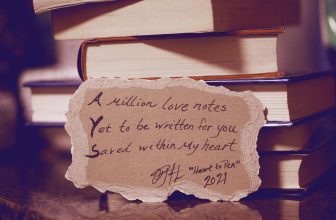 A Million love notes
Yet to be written for you
Saved within My heart
"Heart to Pen"
2021